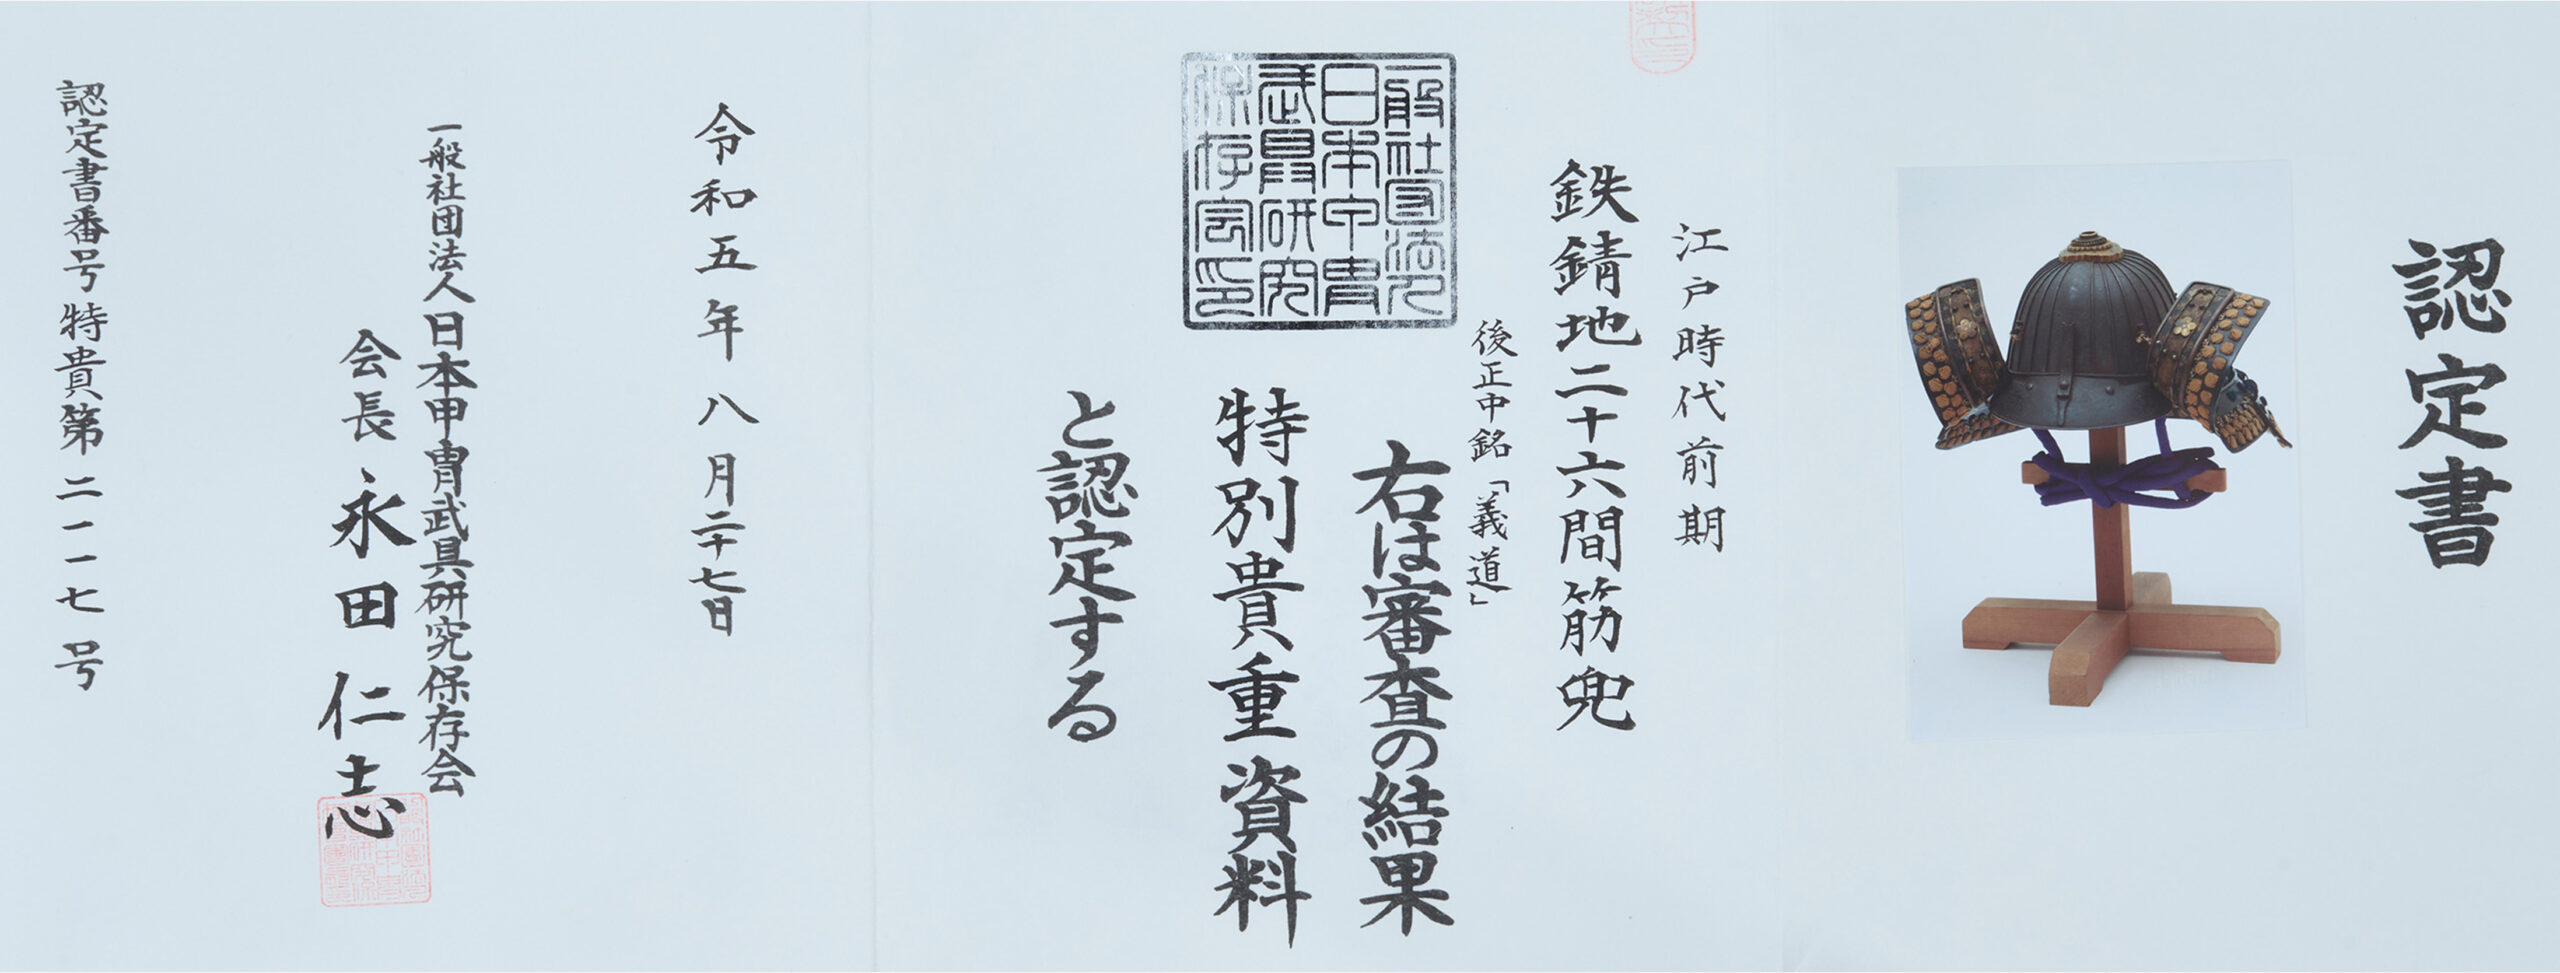 認定書
江戸時代前期
鉄錆地二十六間筋兜
後正中銘「義道」
右は審査の結果
一般社団法人
日本甲冑
武具研究
保存会印
特別貴重資料
と認定する
令和五年八月二十七日
一般社団法人日本甲冑武具研究保存会
会長 永田仁志
認定書番号特貴第二一一七号